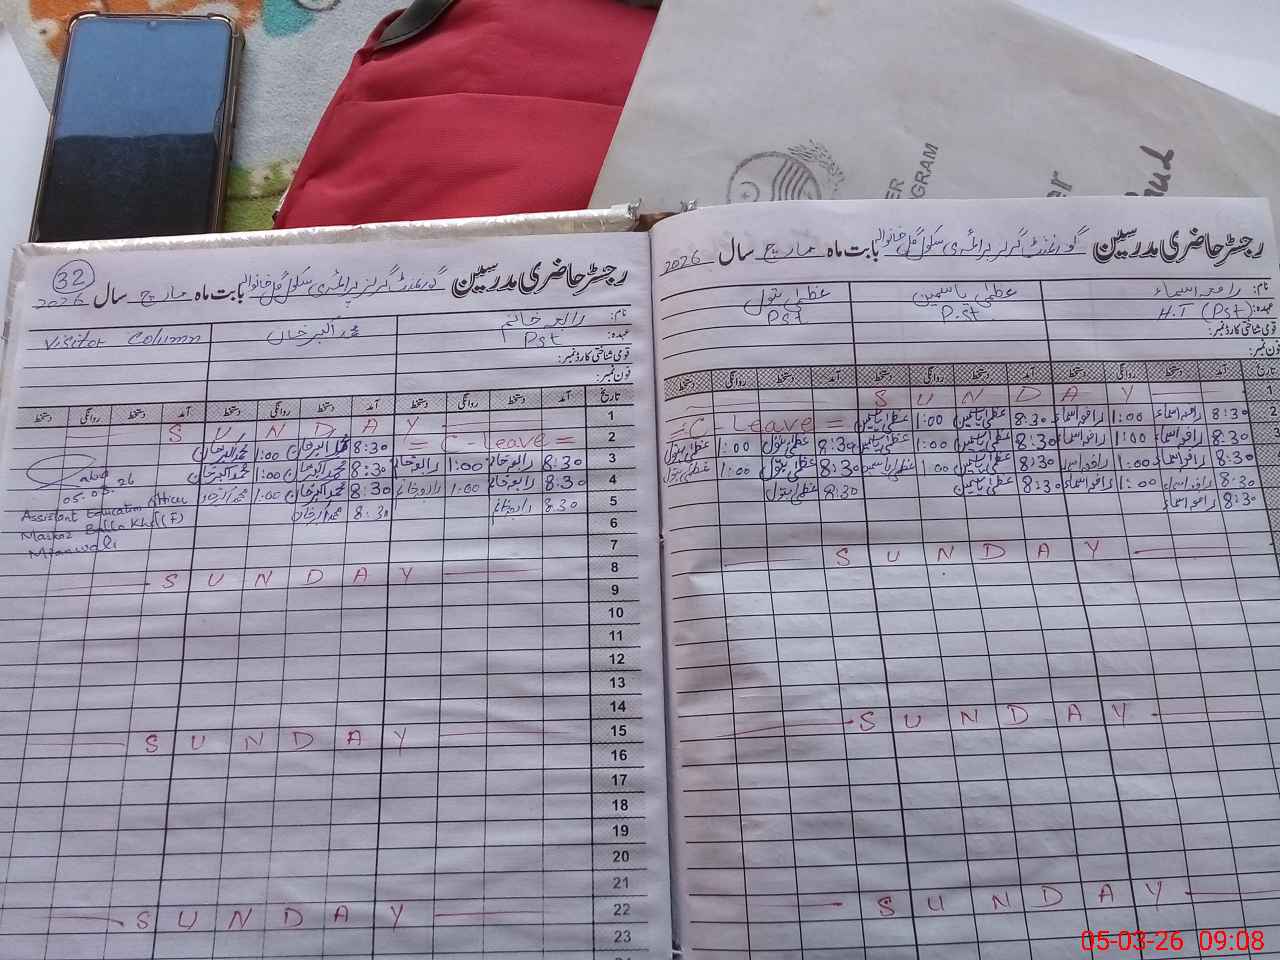 GRAM
32
رجسٹر حاضری مدرسین گورنمنٹ گرلز پرائمری سکول گل خانوالہ بابت ماہ مارچ سال 2026
نام: رابعہ خانم محمد اکبر خان Visitor Column
عہدہ: Pst
قومی شناختی کارڈ نمبر:
فون نمبر:
تاریخ آمد دستخط روانگی دستخط آمد دستخط روانگی دستخط آمد دستخط روانگی دستخط
1 SUNDAY
2 = C-Leave = 8:30 محمد اکبر خان 1:00 محمد اکبر خان
3 8:30 رابعہ خانم 1:00 رابعہ خانم 8:30 محمد اکبر خان 1:00 محمد اکبر خان
4 8:30 رابعہ خانم 1:00 رابعہ خانم 8:30 محمد اکبر خان 1:00 محمد اکبر خان
5 8:30 رابعہ خانم 8:30 محمد اکبر خان
05.03.26
Assistant Education Officer
Markaz Balla Khel (F)
Mianwali
6
7
8 SUNDAY
9
10
11
12
13
14
15 SUNDAY
16
17
18
19
20
21
22 SUNDAY
23
رجسٹر حاضری مدرسین گورنمنٹ گرلز پرائمری سکول گل خانوالہ بابت ماہ مارچ سال 2026
نام: رافعہ اسماء عظمیٰ یاسمین عظمیٰ بتول
عہدہ: H.T (Pst) P.st Pst
قومی شناختی کارڈ نمبر:
فون نمبر:
آمد دستخط روانگی دستخط آمد دستخط روانگی دستخط آمد دستخط روانگی دستخط
1 SUNDAY
2 8:30 رافعہ اسماء 1:00 رافعہ اسماء 8:30 عظمیٰ یاسمین 1:00 عظمیٰ یاسمین = C-Leave =
8:30 رافعہ اسماء 1:00 رافعہ اسماء 8:30 عظمیٰ یاسمین 1:00 عظمیٰ یاسمین 8:30 عظمیٰ بتول 1:00 عظمیٰ بتول
8:30 رافعہ اسماء 1:00 رافعہ اسماء 8:30 عظمیٰ یاسمین 1:00 عظمیٰ یاسمین 8:30 عظمیٰ بتول 1:00 عظمیٰ بتول
8:30 رافعہ اسماء 8:30 عظمیٰ یاسمین 8:30 عظمیٰ بتول
SUNDAY
SUNDAY
SUNDAY
05-03-26 09:08